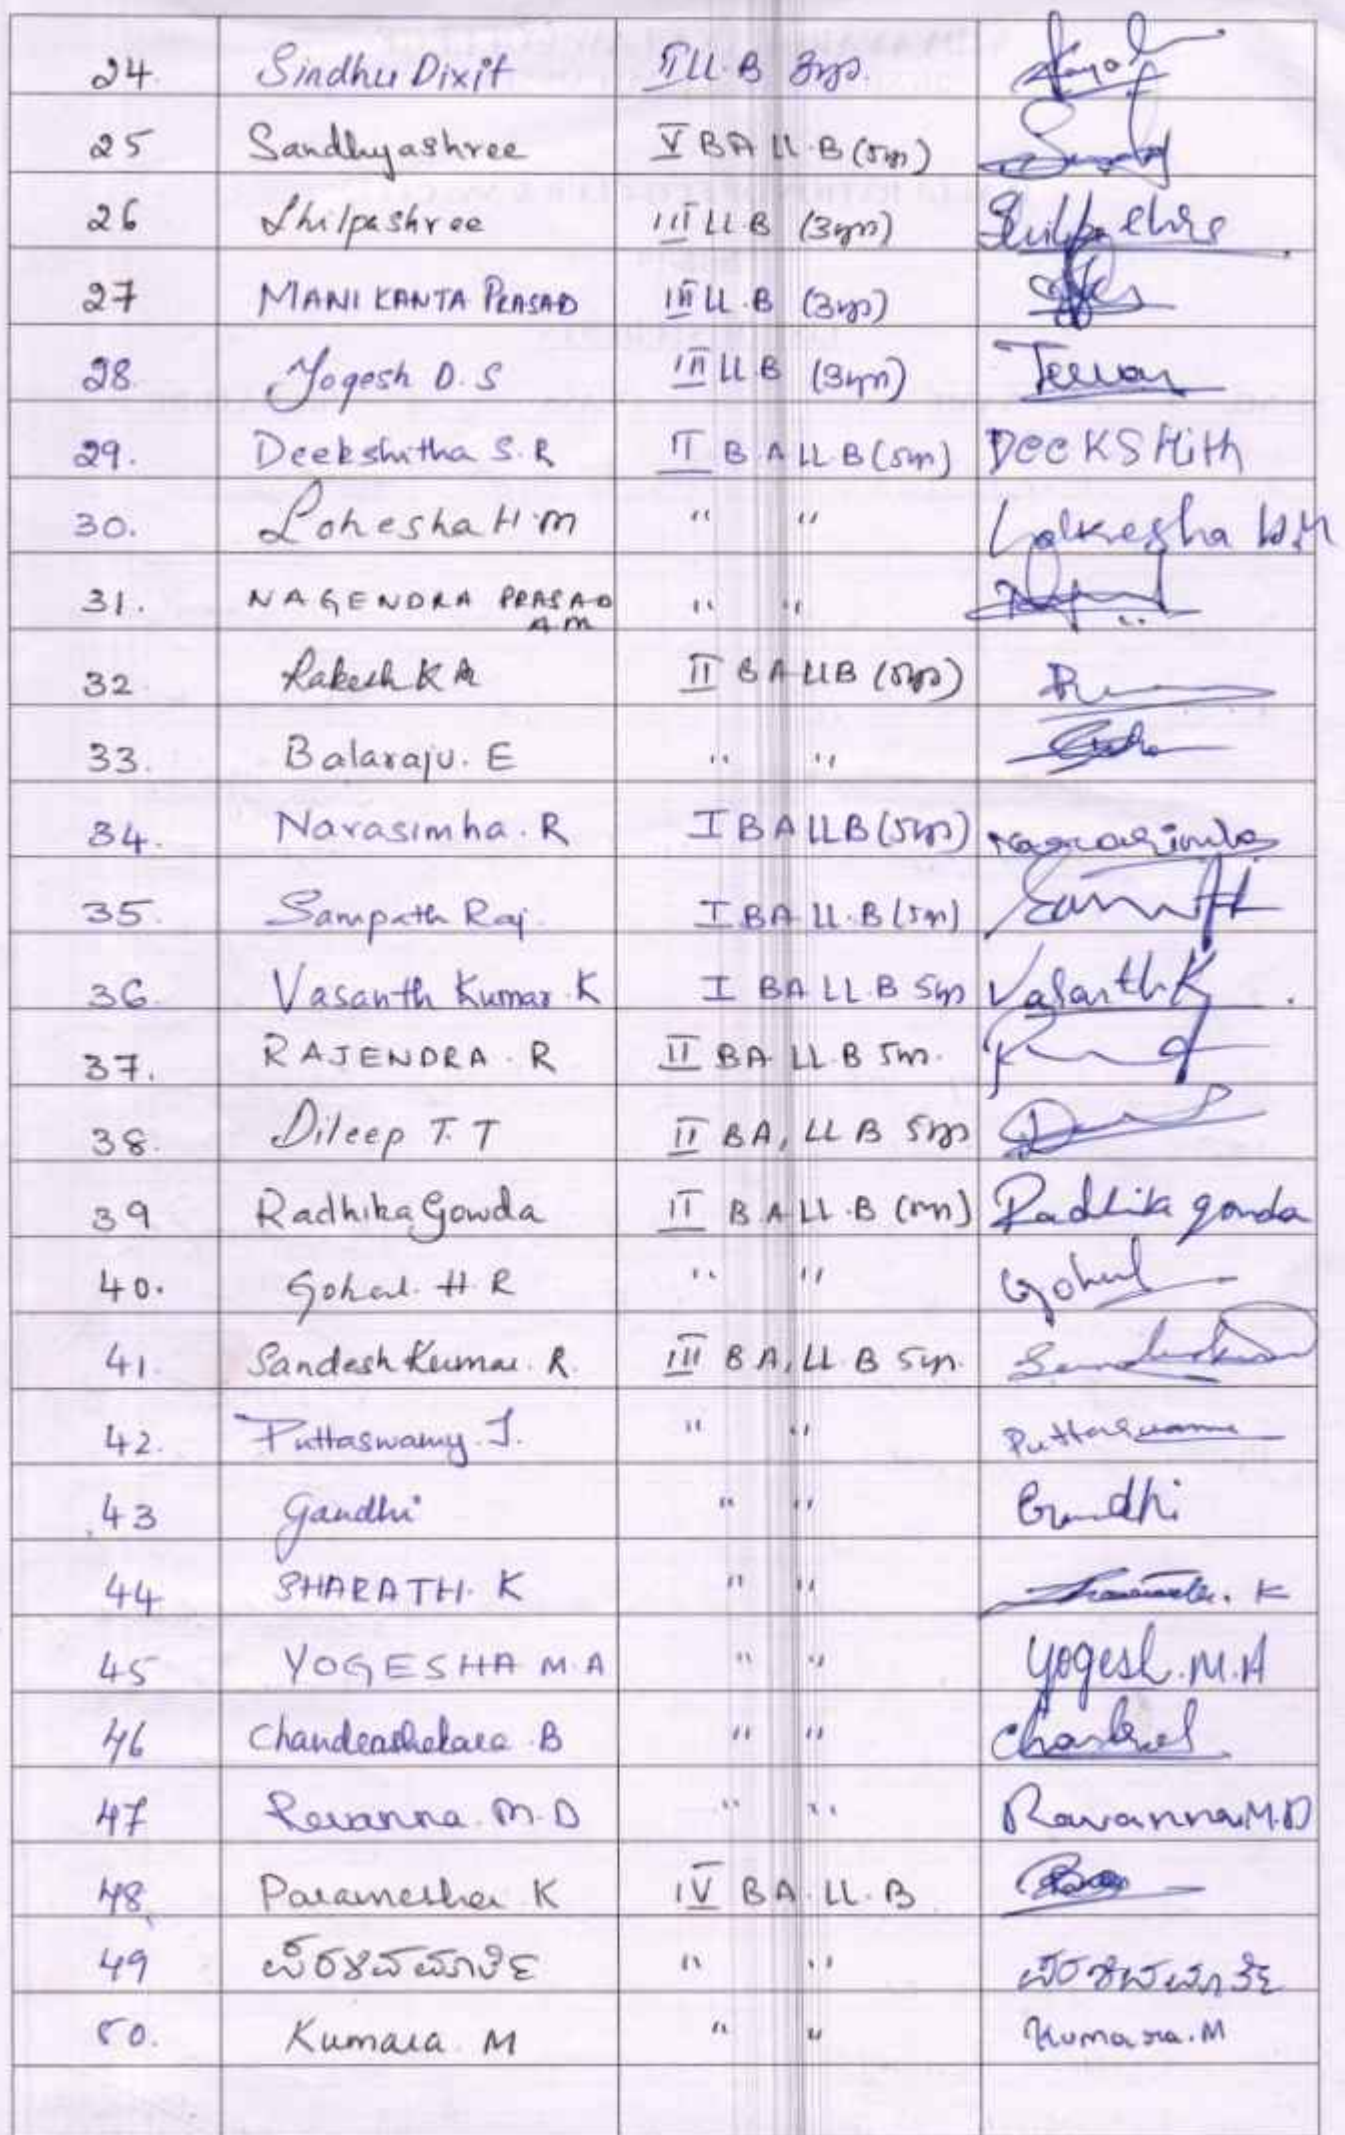 24. Sindhu Dixit II LL.B 3yrs.
25 Sandhyashree V BA LL.B (5yrs)
26 Shilpashree III LL.B (3yrs) Shilpashree
27 MANIKANTA PRASAD III LL.B (3yrs)
28. Yogesh D.S III LL.B (3yrs)
29. Deekshitha S.R II B.A LL.B (5yrs) DeeKSHith
30. Lohesha H.M " " Lokesha H.M
31. NAGENDRA PRASAD " "
A.M
32. Rakesh K R II BA LLB (5yrs)
33. Balaraju. E " "
34. Narasimha. R I BA LLB (5yrs) Narasimha
35. Sampath Raj. I BA LL.B (5yrs)
36. Vasanth Kumar. K I BA LL.B 5yrs Vasanth K
37. RAJENDRA. R II BA LL.B 5yrs.
38. Dileep T.T II BA, LL B 5yrs
39 Radhika Gowda II BA LL.B (5yrs) Radhika gowda
40. Gohul. H.R " " Gohul
41. Sandesh Kumar. R. III BA, LL.B 5yrs.
42. Puttaswamy. J. " " Puttaswamy
43 Gandhi " " Gandhi
44. SHARATH. K " "
45 YOGESHA M.A " " Yogesh.M.A
46 Chandrashekara. B " "
47 Revanna. M.D " " Ravanna.M.D
48. Paramesha. K IV BA. LL.B
49 " "
50. Kumara. M " " Kumara.M